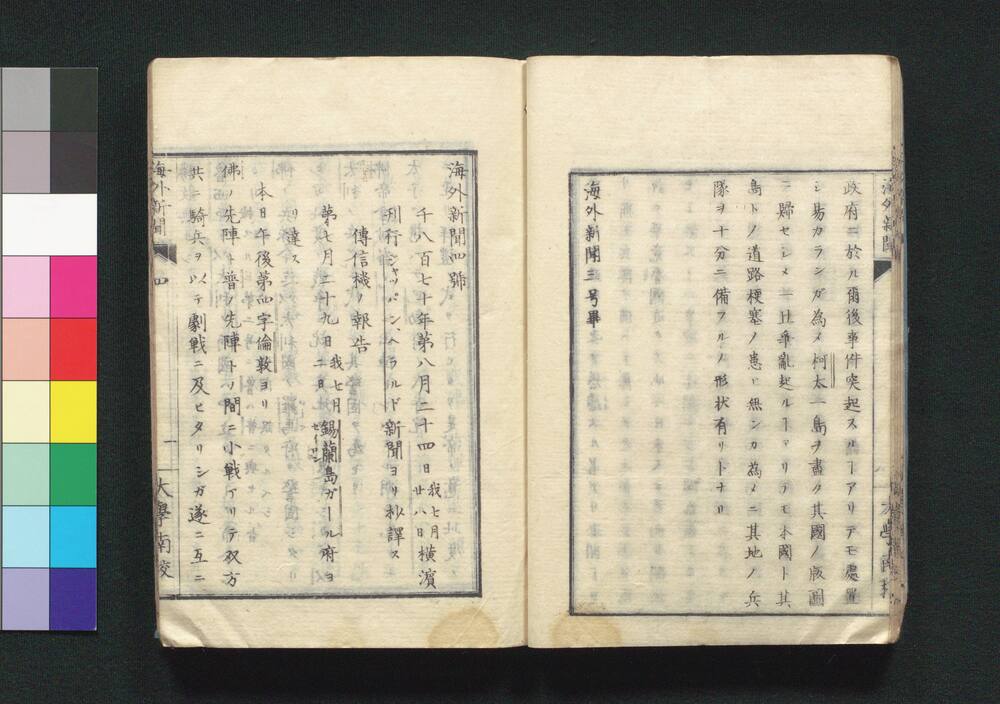 海外新聞
政府ニ於ル爾後事件突起スルヿアリテモ處置
シ易カランガ為メ柯太一島ヲ盡ク其國ノ版圖
ニ歸セシメ一旦爭亂起ルヿアリテモ本國ト其
島トノ道路梗塞ノ患ヒ無ンカ為メニ其地ノ兵
隊ヲ十分ニ備フルノ形状有リトナリ
海外新聞三号畢
海外新聞四號
千八百七十年第八月二十四日我七月廿八日横濱
刊行ジャッパン、ヘラルド新聞ヨリ抄譯ス
傳信機ノ報告
第七月二十九日我七月二日錫蘭島ガール府ヨ
セイロン
リ達ス
本日午後第四字倫敦ヨリ
佛ノ先陣ト普ノ先陣トノ間ニ小戰アリテ双方
共ニ騎兵ヲ以テ劇戰ニ及ビタリシガ遂ニ互ニ
海外新聞 四 一 大學南校